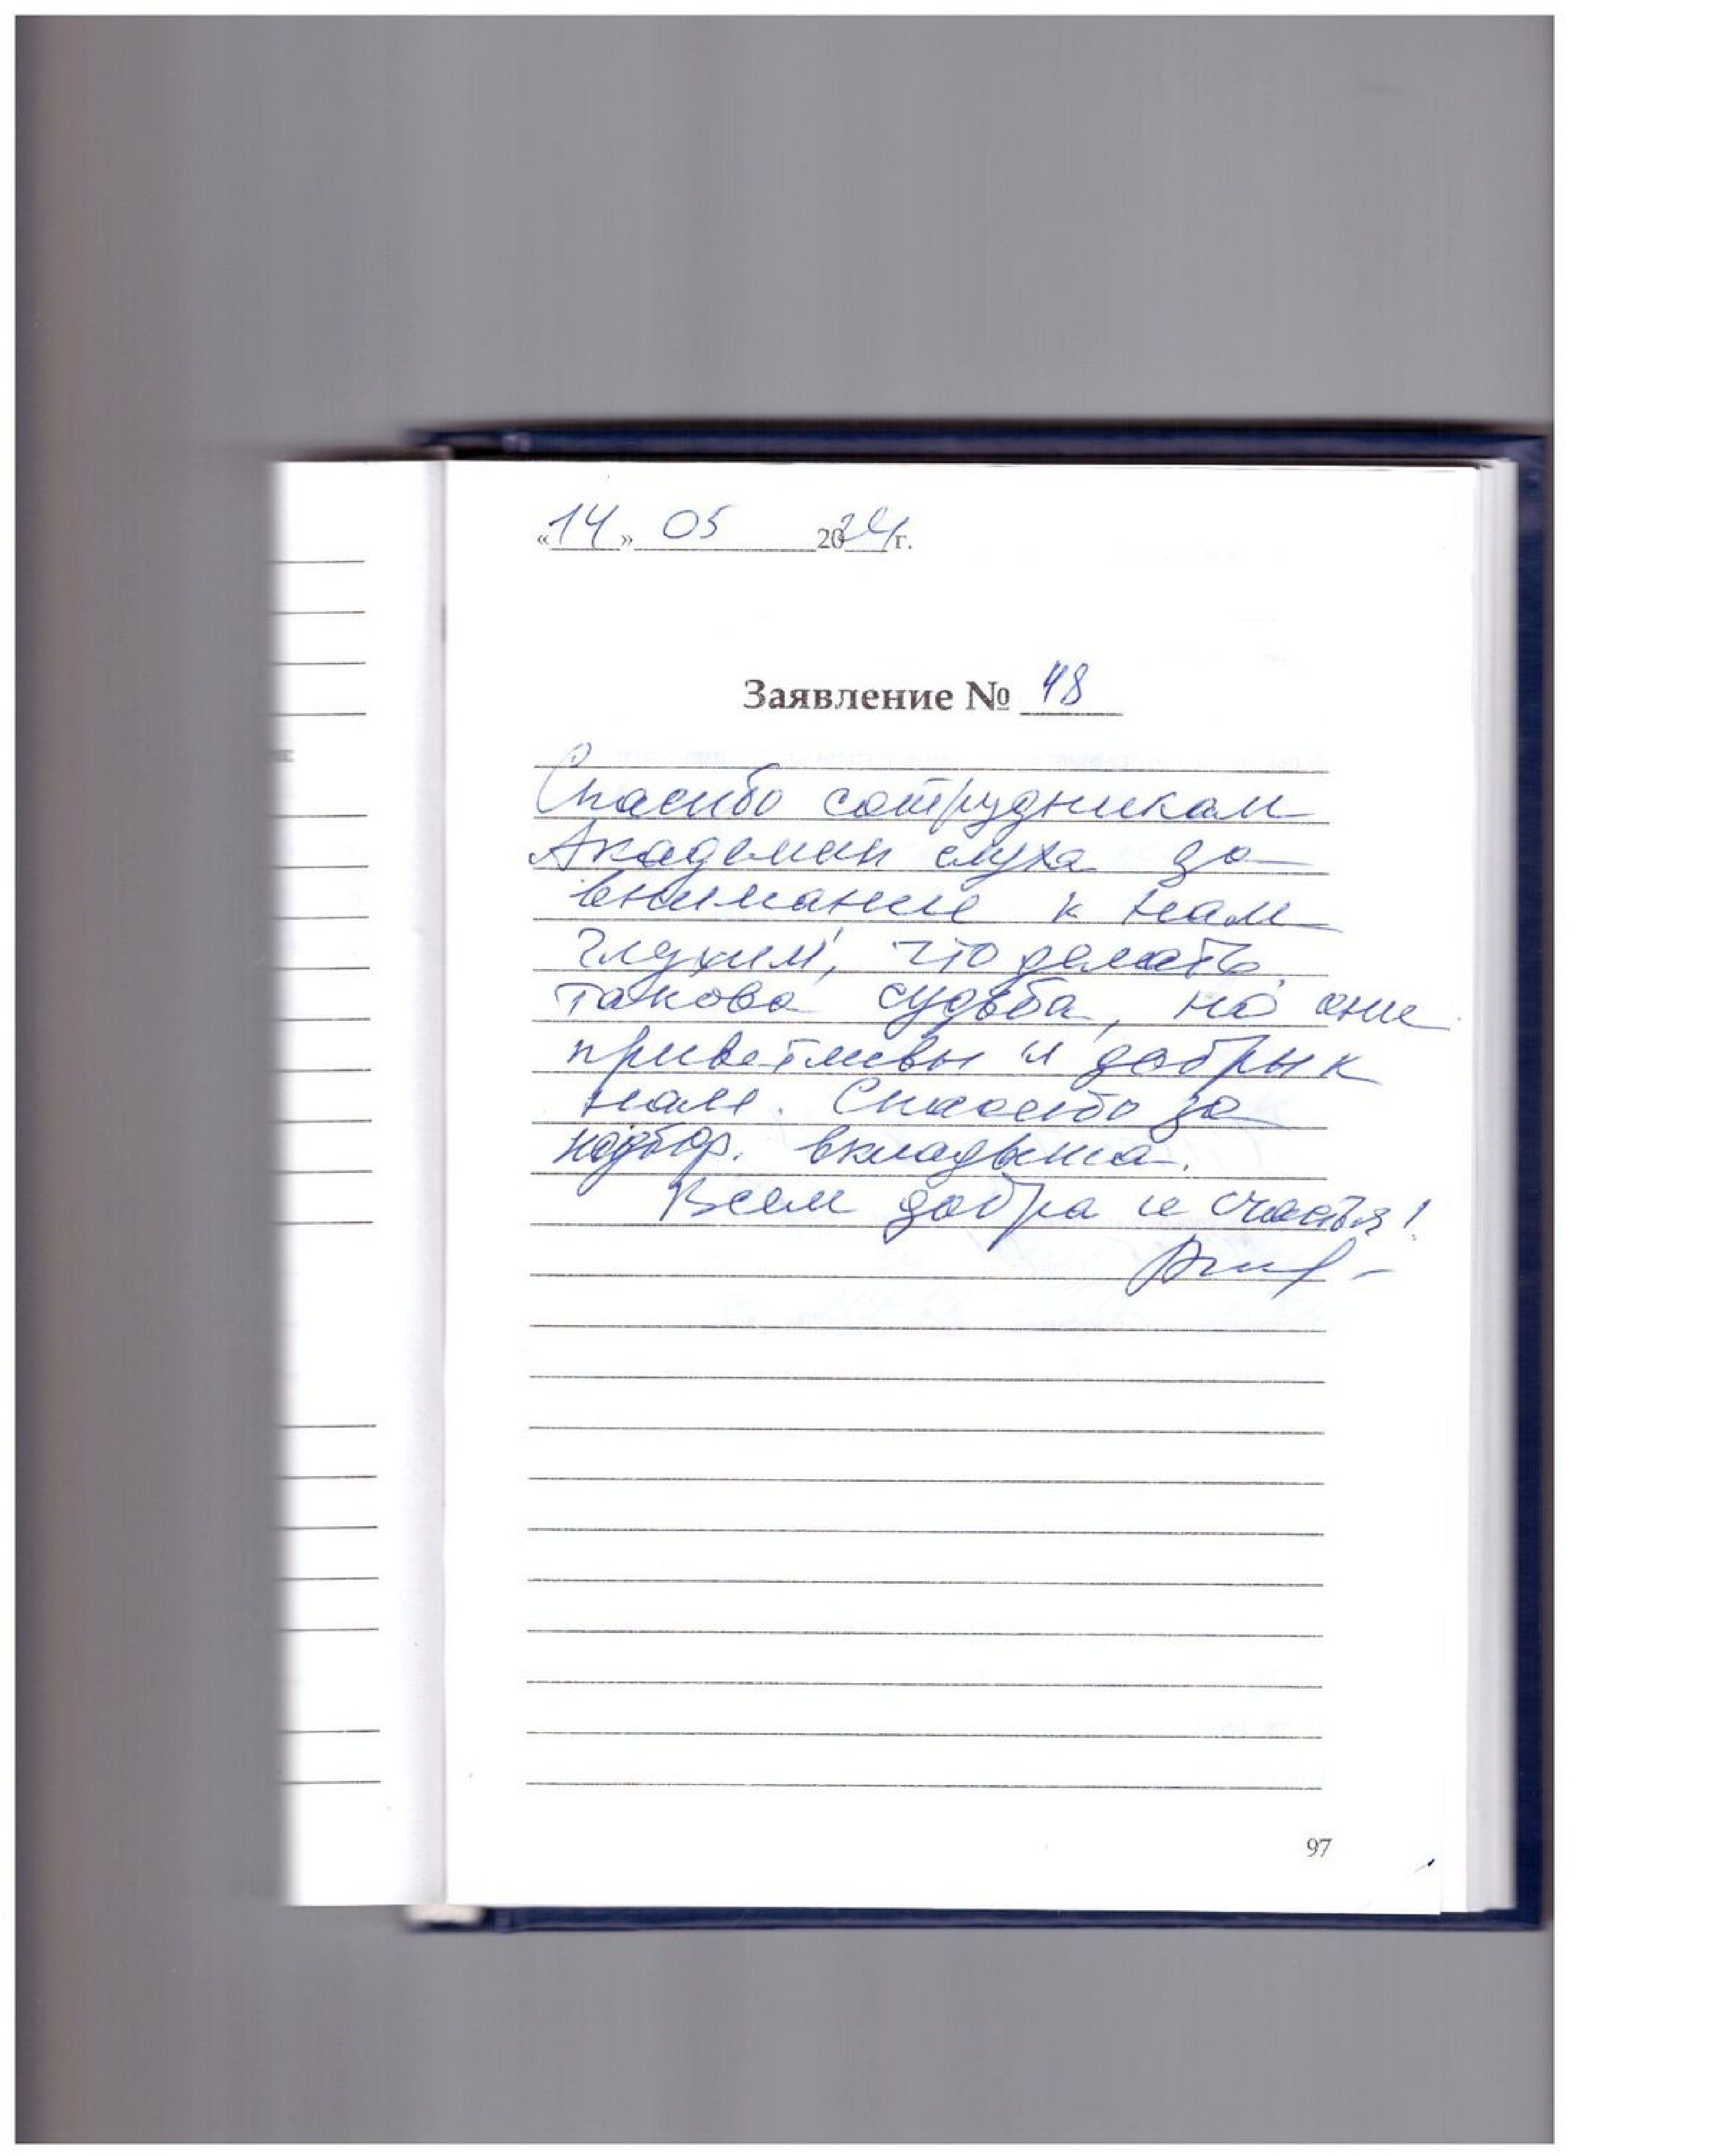 «14» 05 2024г.
Заявление № 48
Спасибо сотрудникам
Академии слуха за
внимание к нам
глухим, что делать
такова судьба, но они
приветливы и добры к
нам. Спасибо за
подбор. вкладыша.
Всем добра и счастья!
97